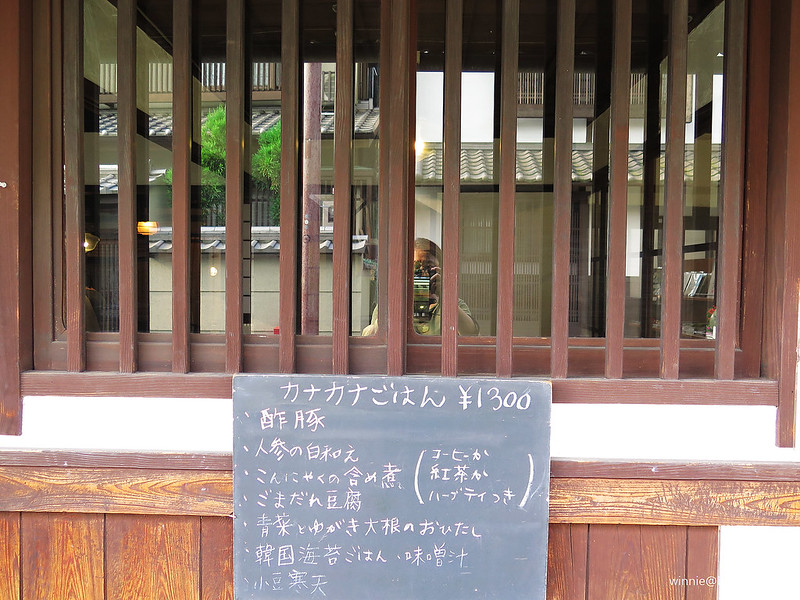 カナカナごはん ¥1300
・酢豚
・人参の白和え
・こんにゃくの含め煮
・ごまだれ豆腐
(コーヒーか
紅茶か
ハーブティつき)
・青菜とゆがき大根のおひたし
・韓国海苔ごはん、味噌汁
・小豆寒天
winnie@